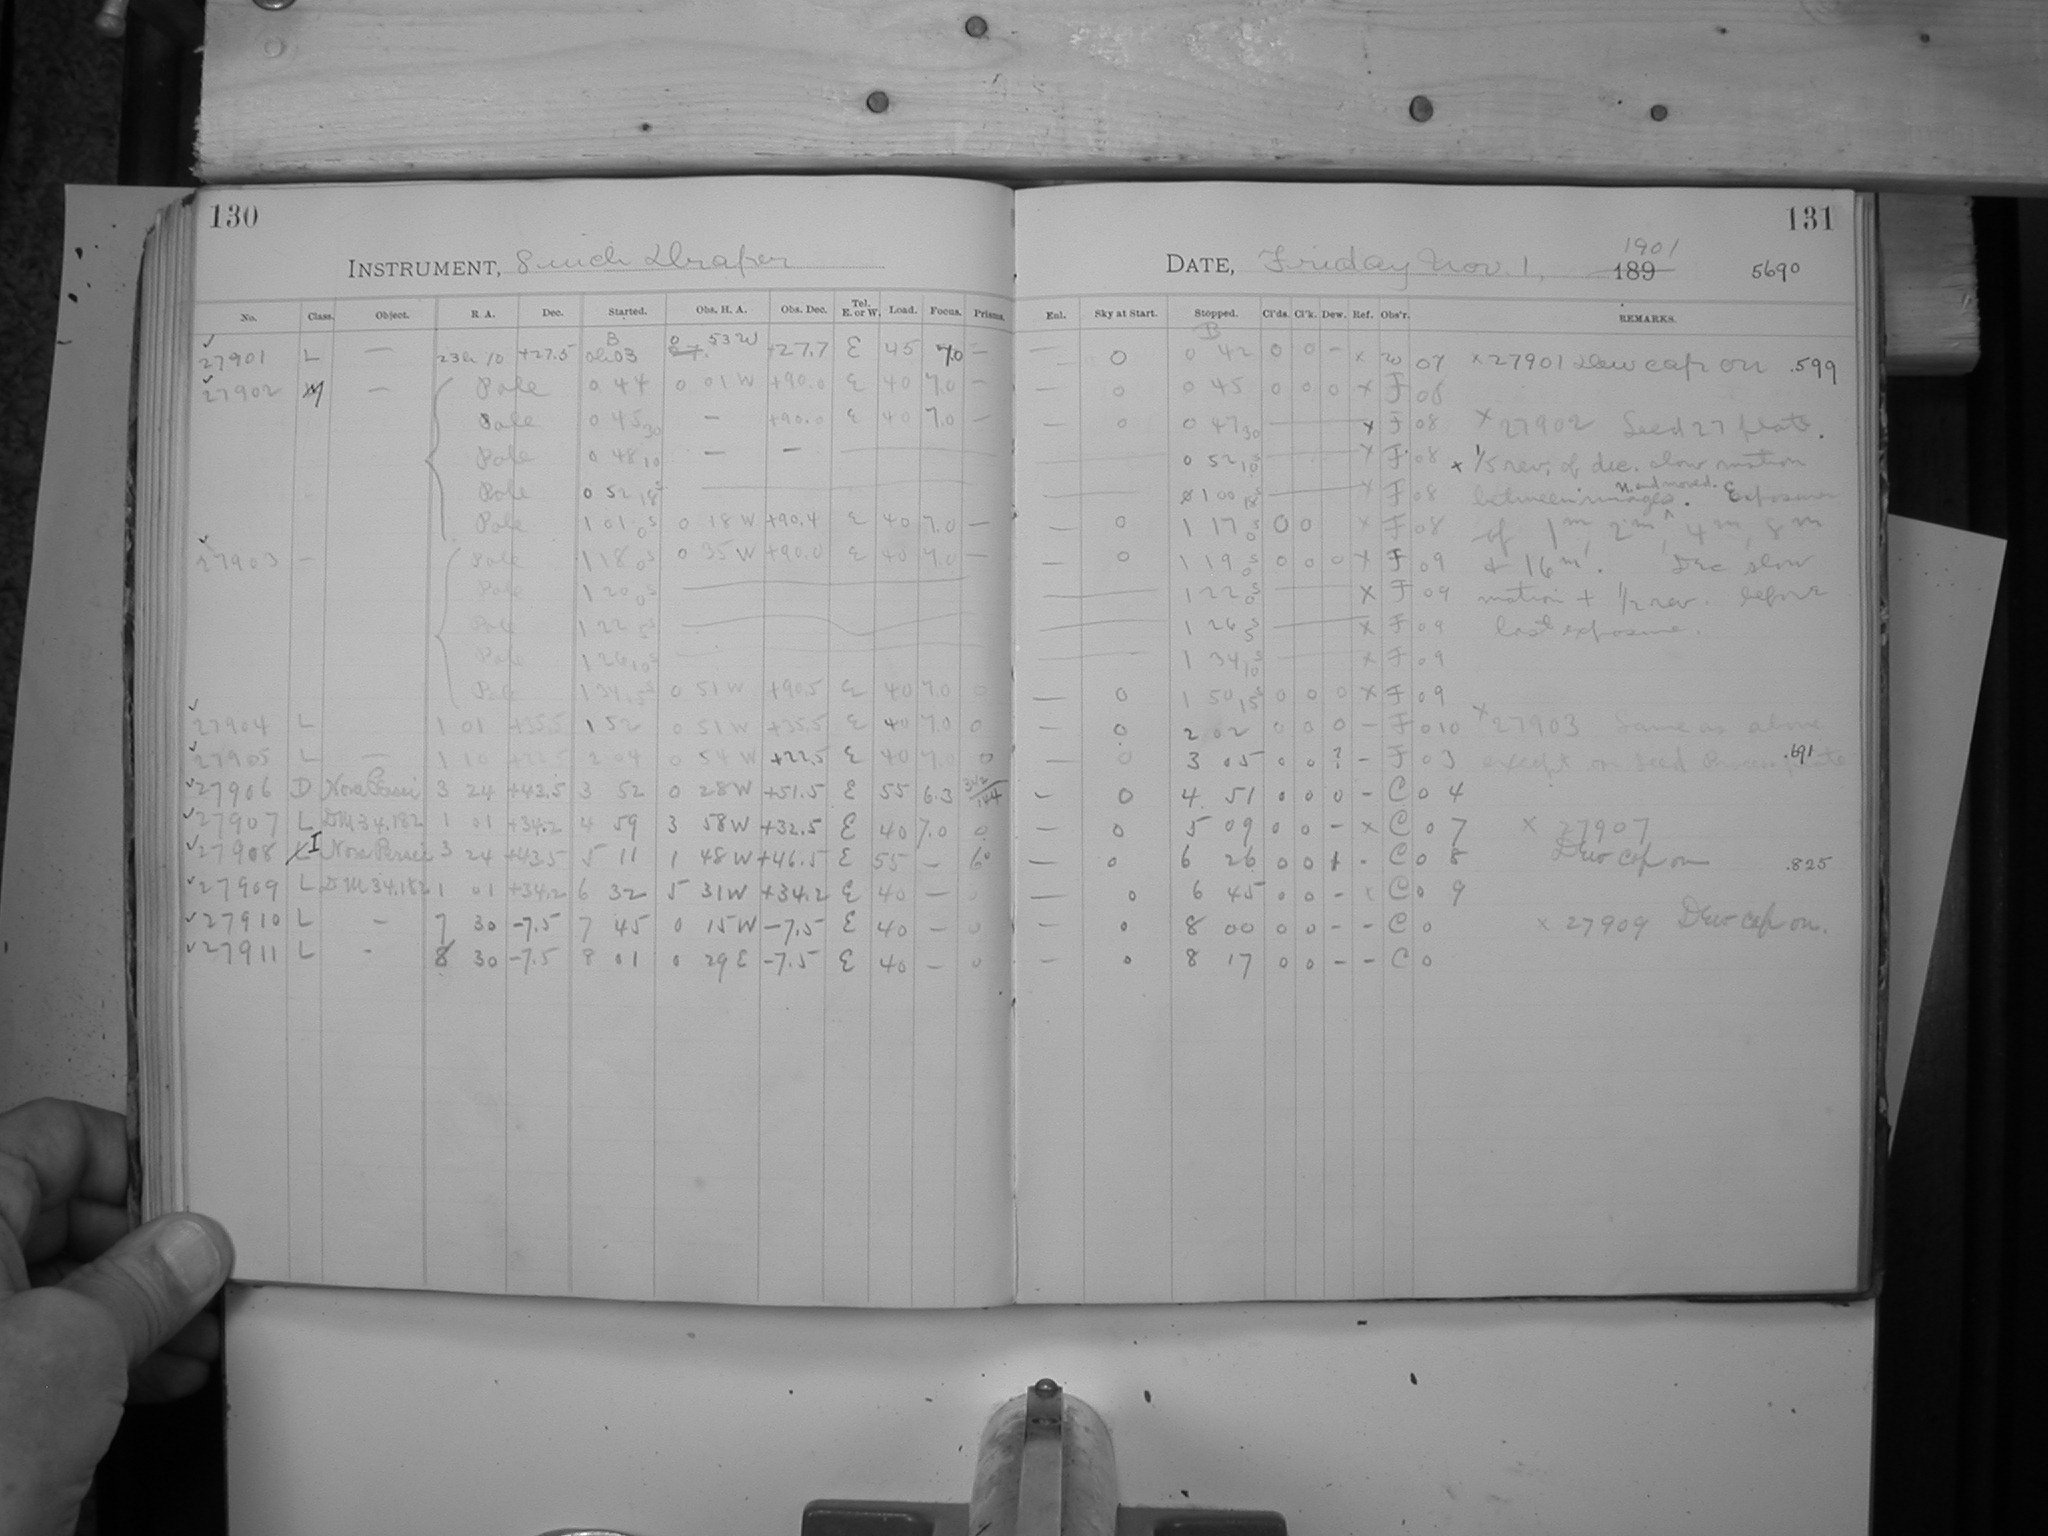 130
INSTRUMENT, 8 inch Draper
No. Class. Object. R. A. Dec. Started. Obs. H. A. Obs. Dec. Tel. E. or W. Load. Focus. Prisms.
27901 L — 23h 10 +27.5 0h 03 0 53 W +27.7 E 45 7.0 —
27902 — Pole 0 44 0 01 W +90.0 E 40 7.0 —
Pole 0 45 30 — +90.0 E 40 7.0 —
Pole 0 48 10 — —
Pole 0 52 18s
Pole 1 01 0s 0 18 W +90.4 E 40 7.0 —
27903 — Pole 1 18 0s 0 35 W +90.0 E 40 7.0 —
Pole 1 20 0s
Pole 1 22 5s
Pole 1 26 10s
Pole 1 34 15s 0 51 W +90.5 E 40 7.0 0
27904 L 1 01 +35.5 1 52 0 51 W +35.5 E 40 7.0 0
27905 L — 1 10 +22.5 2 04 0 54 W +22.5 E 40 7.0 0
27906 D Nova Persei 3 24 +43.5 3 52 0 28 W +51.5 E 55 6.3
27907 L DM 34.182 1 01 +34.2 4 59 3 58 W +32.5 E 40 7.0 0
27908 I Nova Persei 3 24 +43.5 5 11 1 48 W +46.5 E 55 — 60
27909 L DM 34.182 1 01 +34.2 6 32 5 31 W +34.2 E 40 — 0
27910 L - 7 30 -7.5 7 45 0 15 W -7.5 E 40 — 0
27911 L - 8 30 -7.5 8 01 0 29 E -7.5 E 40 — 0
131
DATE, Friday Nov. 1, 1901 189 5690
Enl. Sky at Start. Stopped. Cl'ds. Cl'k. Dew. Ref. Obs'r. REMARKS.
— 0 0 42 0 0 - x W 07 x 27901 Dew cap on .599
— 0 0 45 0 0 0 x F 08
— 0 0 47 30 x F 08 x 27902 Seed 27 plate.
0 52 10s x F 08 x 1/5 rev. of dec. slow motion
1 00 18s x F 08 between images. and moved. Exposures
— 0 1 17 0s 0 0 x F 08 of 1m, 2m, 4m, 8m
— 0 1 19 0s 0 0 0 x F 09 + 16m. Dec slow
1 22 0s x F 09 motion + 1/2 rev. before
1 26 5s x F 09 last exposure.
1 34 10s x F 09
— 0 1 50 15s 0 0 0 x F 09
— 0 2 02 0 0 0 - F 010 x 27903 Same as above
— 0 3 05 0 0 ? - F 03 except on Seed Process plate .691
— 0 4 51 0 0 0 - C 0 4
— 0 5 09 0 0 - x C 0 7 x 27907
— 0 6 26 0 0 - C 0 8 Dew cap on .825
0 6 45 0 0 - x C 0 9
— 0 8 00 0 0 - - C 0 x 27909 Dew cap on.
— 0 8 17 0 0 - - C 0